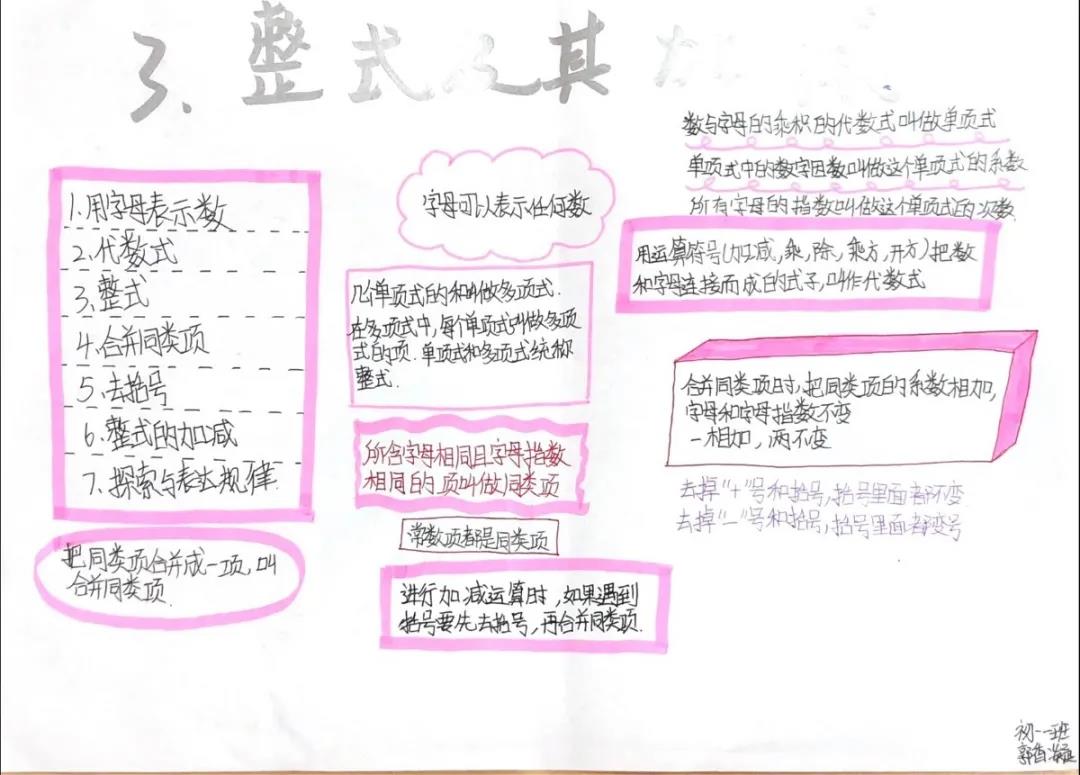 3、整式及其加减
1.用字母表示数
2.代数式
3.整式
4.合并同类项
5.去括号
6.整式的加减
7.探索与表达规律
把同类项合并成一项,叫
合并同类项.
字母可以表示任何数
几个单项式的和叫做多项式.
在多项式中,每个单项式叫做多项
式的项.单项式和多项式统称
整式.
所含字母相同且字母指数
相同的项叫做同类项
常数项都是同类项
进行加减运算时,如果遇到
括号要先去括号,再合并同类项.
数与字母的乘积的代数式叫做单项式
单项式中的数字因数叫做这个单项式的系数
所有字母的指数叫做这个单项式的次数.
用运算符号(加,减,乘,除,乘方,开方)把数
和字母连接而成的式子,叫作代数式
合并同类项时,把同类项的系数相加,
字母和字母指数不变
一相加,两不变
去掉“+”号和括号,括号里面都不变
去掉“—”号和括号,括号里面都变号
初一一班
郭香